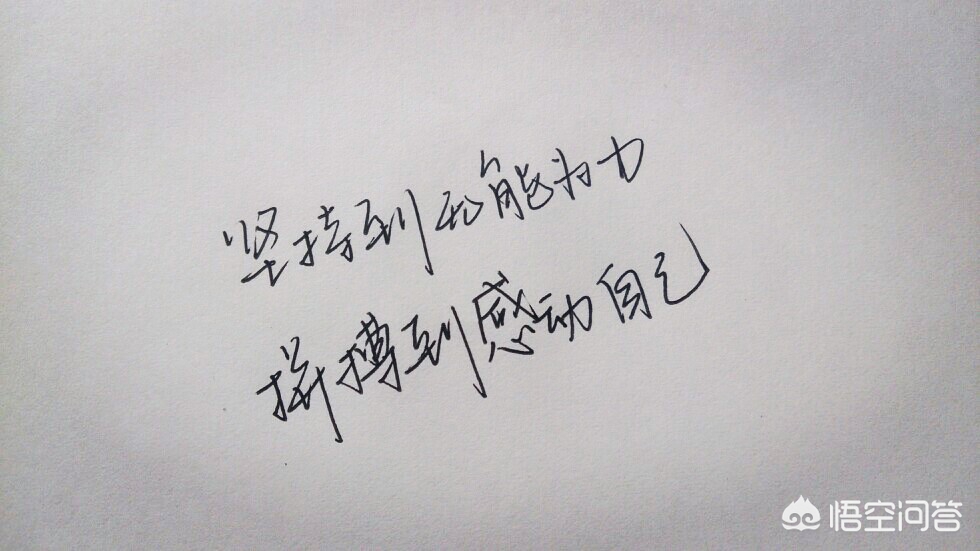 坚持到无能为力
拼搏到感动自己
悟空问答